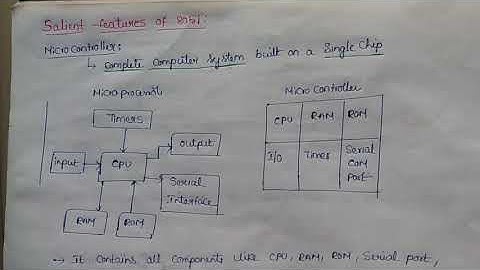 Salient features of 8051:
Microcontroller:
↳ complete computer system built on a single chip
Microprocessor
Timers
input
CPU
output
Serial
Interface
RAM
ROM
Micro Controller
CPU RAM ROM
I/O Timer Serial
COM
Port
→ It contains all components like CPU, RAM, ROM, Serial port,